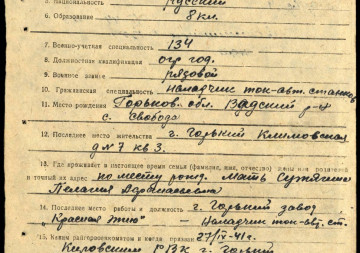 5. Национальность русский
6. Образование 8 кл.
7. Военно-учетная специальность 134
8. Должностная квалификация огр год.
9. Военное звание рядовой
10. Гражданская специальность наладчик ток-авт. станков
11. Место рождения Горьков. обл. Вадский р-н
с. Свобода
12. Последнее место жительства г. Горький Климовская
д N 7 кв 3.
13. Где проживает в настоящее время семья (фамилия, имя, отчество) жены или родителей
и точный их адрес по месту рожд. Мать Сужягина
Пелагия
14. Последнее место работы и должность г. Горький завод
Красная Этна" - Наладчик ток-авт. ст.
15. Каким райгорвоенкоматом и когда призван 27/IV-41 г.
Кировским РВК г. Горький